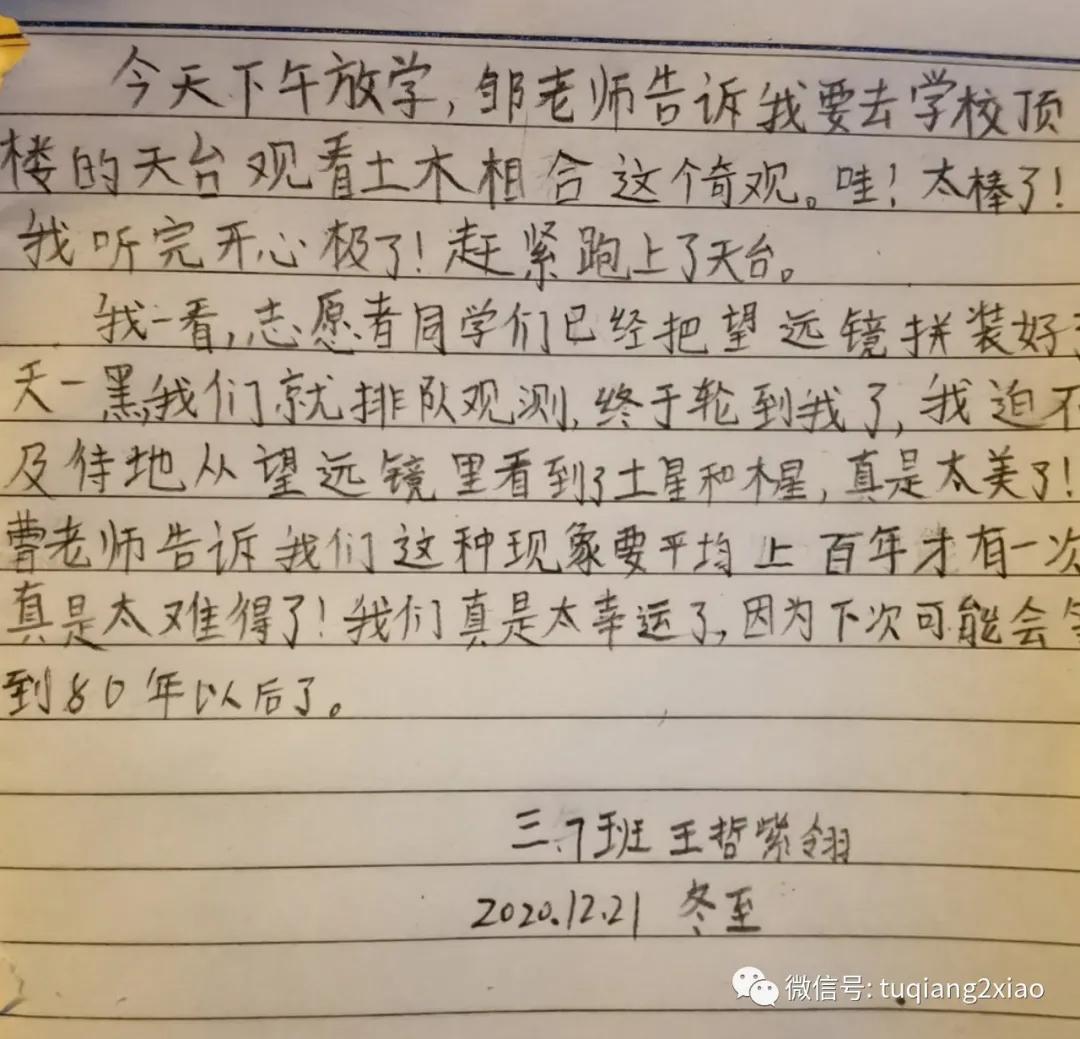 今天下午放学,邹老师告诉我要去学校顶
楼的天台观看土木相合这个奇观。哇！太棒了！
我听完开心极了！赶紧跑上了天台。
我一看,志愿者同学们已经把望远镜拼装好
天一黑,我们就排队观测,终于轮到我了,我迫不
及待地从望远镜里看到了土星和木星,真是太美了！
曹老师告诉我们这种现象要平均上百年才有一次
真是太难得了！我们真是太幸运了,因为下次可能会
到80年以后了。
三.7班 王哲紫翎
2020.12.21 冬至
微信号: tuqiang2xiao